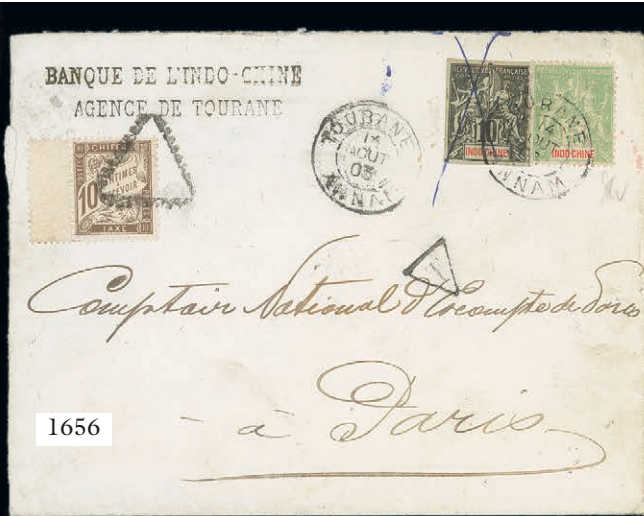 BANQUE DE L'INDO-CHINE
AGENCE DE TOURANE
TOURANE
14
AOUT
03
ANNAM
10
INDO-CHINE
INDO-CHINE
TOURANE
14
AOUT
ANNAM
CHIFFRE
10
CENTIMES
À PERCEVOIR
TAXE
T
Comptoir National d'Escompte de Paris
- à Paris
1656